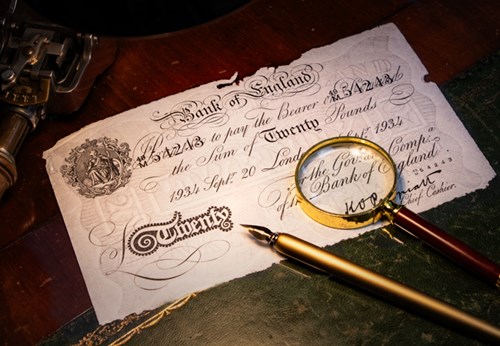 Bank of England
to pay the Bearer
54243 54243
the Sum of Twenty Pounds
1934 Septr. 20 London Septr. 1934
For the Govr. and Compa.
of the Bank of England
Twenty
Chief Cashier.